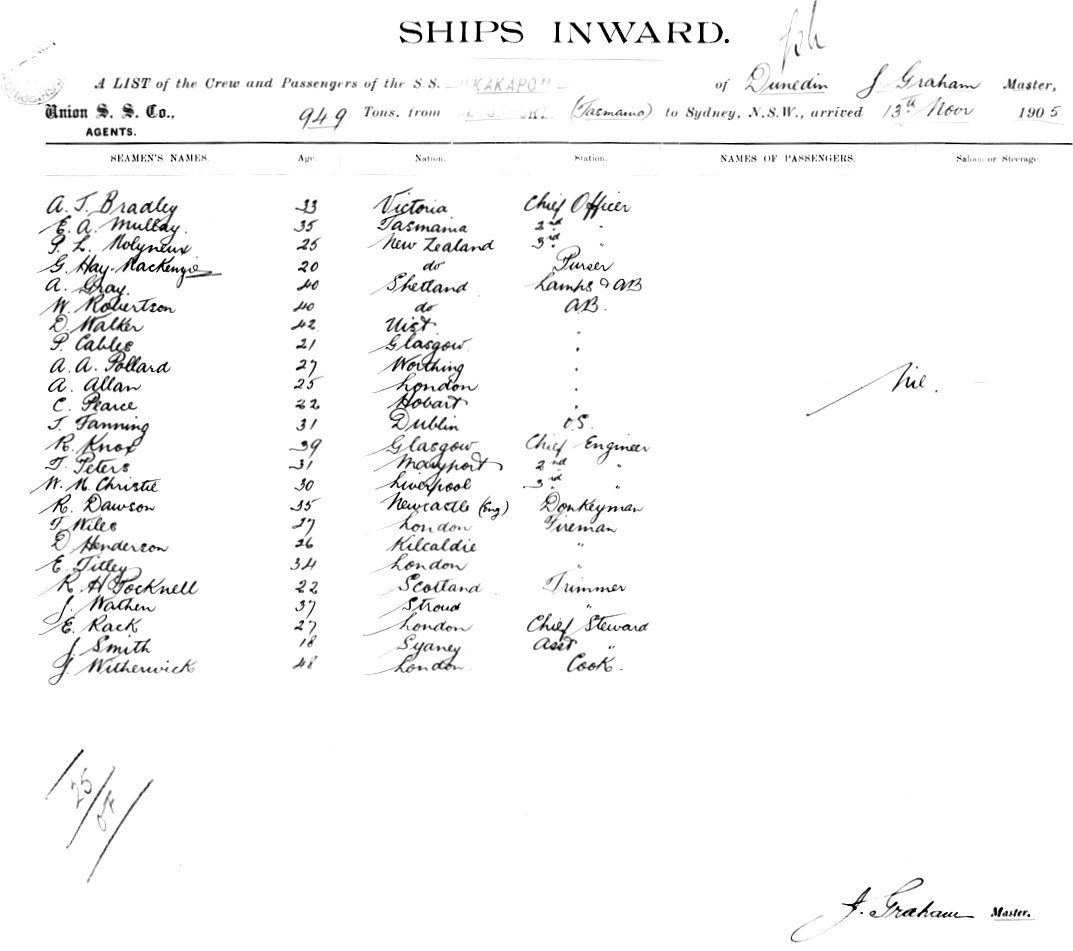 SHIPS INWARD.
A LIST of the Crew and Passengers of the S.S. "KAKAPO" of Dunedin J Graham Master,
Union S. S. Co., 949 Tons, from (Tasmania) to Sydney, N.S.W., arrived 13th Novr 1905
AGENTS.
SEAMEN'S NAMES. Age. Nation. Station. NAMES OF PASSENGERS. Saloon or Steerage.
A. J. Bradley 33 Victoria Chief Officer
E. A. Mullay. 35 Tasmania 2nd "
P. L. Molyneux 25 New Zealand 3rd "
G. Hay-Mackenzie 20 do Purser
A. Gray. 40 Shetland Lamps & AB
W. Robertson 40 do AB.
D. Walker 42 Uist "
P. Cables 21 Glasgow "
A. A. Pollard 27 Worthing "
A. Allan 25 London "
Nil.
C. Pearce 22 Hobart "
T. Fanning 31 Dublin O.S.
R. Knox 39 Glasgow Chief Engineer
T. Peters 31 Maryport 2nd "
W. M. Christie 30 Liverpool 3rd "
R. Dawson 35 Newcastle (Eng) Donkeyman
T. Wiles 27 London Fireman
D Henderson 26 Kilcaldie "
E. Titley 34 London "
R. H Pocknell 22 Scotland Trimmer
J. Wathen 37 Stroud "
E. Rack 27 London Chief Steward
J. Smith 18 Sydney Asst "
J. Witherwick 48 London Cook.
25
J. Graham Master.